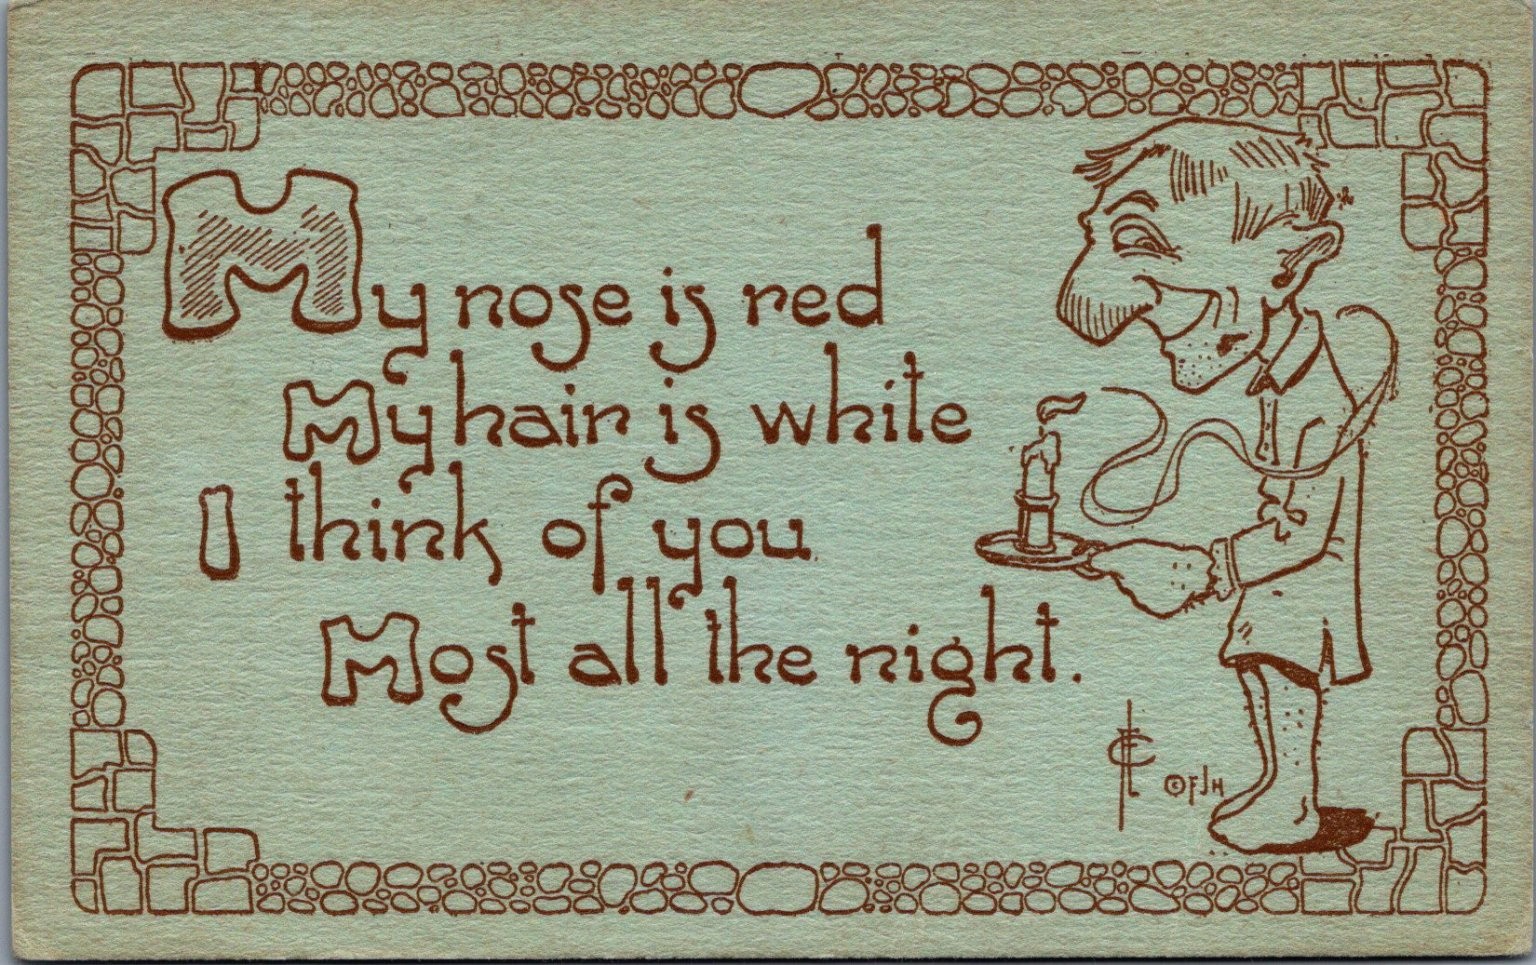 My nose is red
My hair is white
I think of you
Most all the night.
©FJH